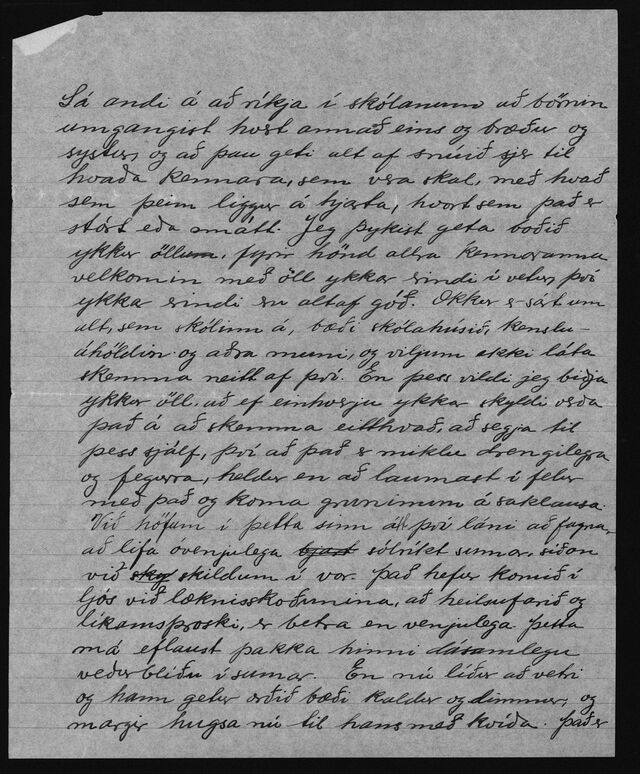 Sá andi á að ríkja í skólanum að börnin
umgangist hvert annað eins og bræður og
systur, og að þau geti alt af snúið sjer til
hvaða kennara, sem vera skal, með hvað
sem þeim liggur á hjarta, hvort sem það er
stórt eða smátt. Jeg þykist geta boðið
ykkur öllum, fyrir hönd allra kennaranna
velkomin með öll ykkar erindi í vetur, því
ykkar erindi eru altaf góð. Okkur er sárt um
alt, sem skólinn á, bæði skólahúsið, kenslu-
áhöldin og aðra muni, og viljum ekki láta
skemma neitt af því. En þess vildi jeg biðja
ykkur öll, að ef einhverju ykkar skyldi verða
það á að skemma eitthvað, að segja til
þess sjálf, því að það er miklu drengilegra
og fegurra, heldur en að laumast í felur
með það og koma gruninum á saklausa.
Við höfum í þetta sinn átt því láni að fagna,
að lifa óvenjulega bjart sólríkt sumar, síðan
við sky skildum í vor. Það hefur komið í
ljós við læknisskoðunina, að heilsufarið og
líkamsþroski, er betra en venjulega. Þetta
má eflaust þakka hinni dásamlegu
veðurblíðu í sumar. En nú líður að vetri
og hann getur orðið bæði kaldur og dimmur, og
margir hugsa nú til hans með kvíða. Það er